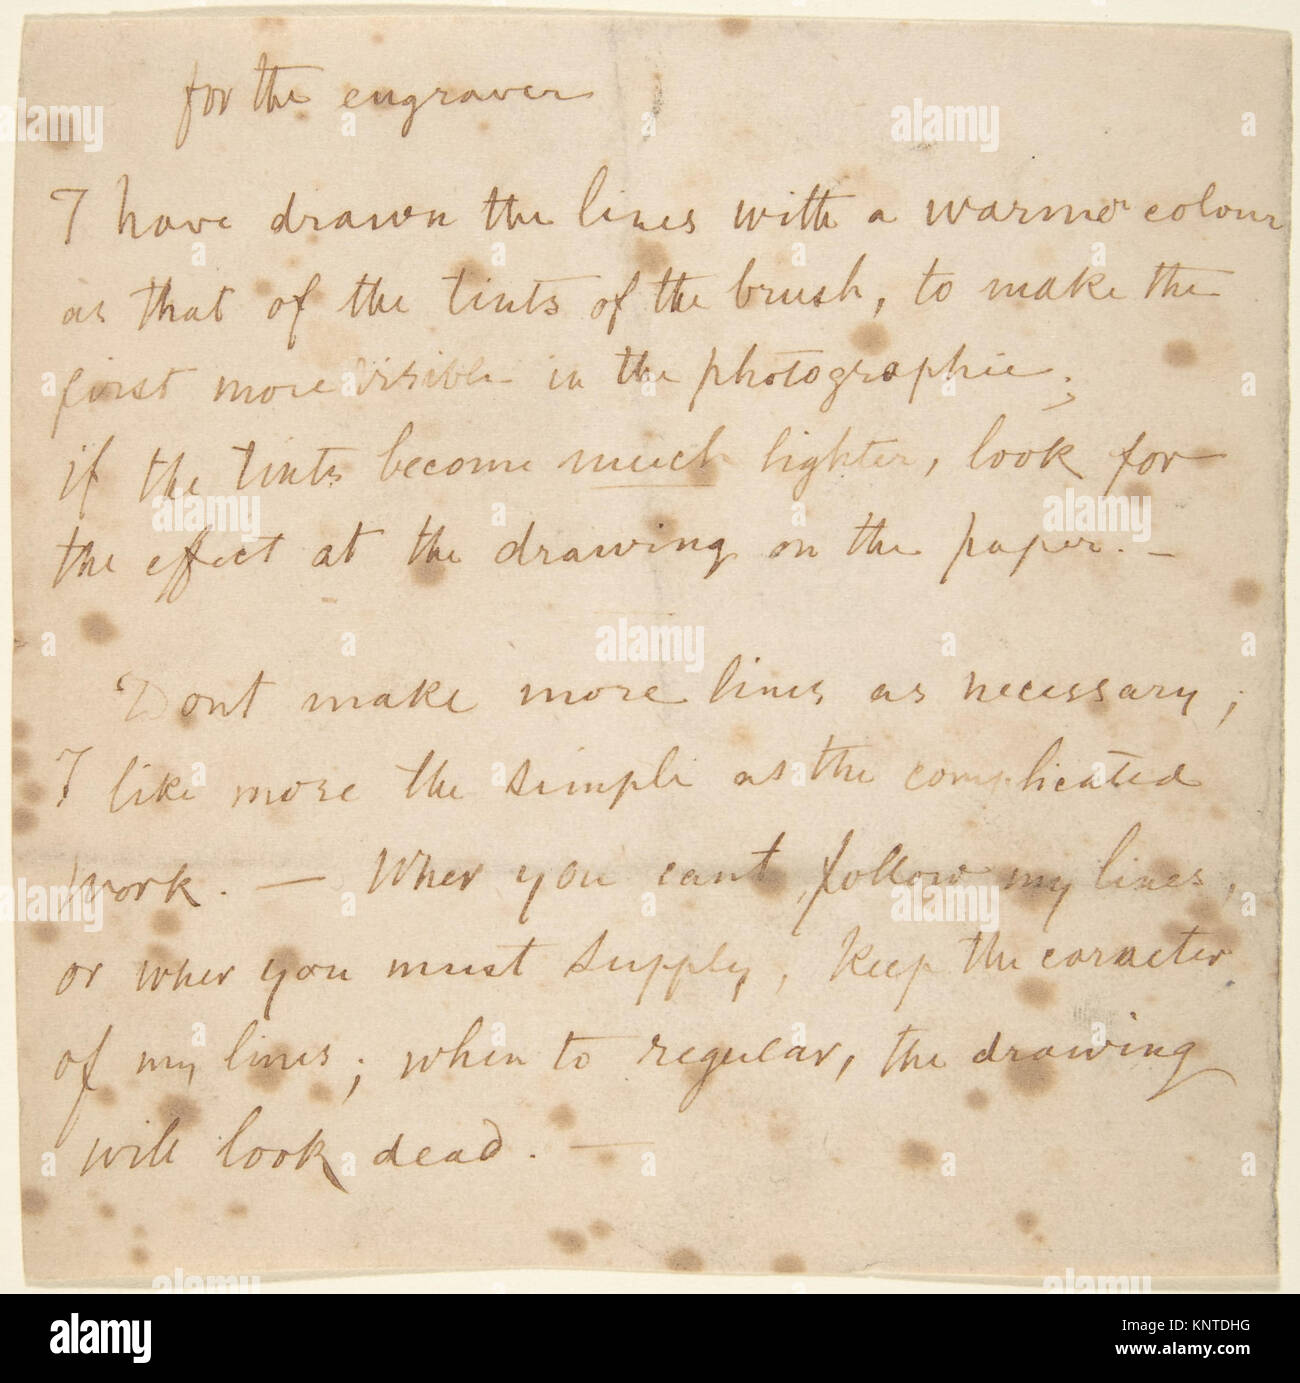 for the engraver
I have drawn the lines with a warmer colour
as that of the tints of the brush, to make the
first more visible in the photographie;
if the tints become much lighter, look for
the effect at the drawing on the paper. —
Dont make more lines as necessary;
I like more the simple as the complicated
work. — Wher you cant follow my lines,
or wher you must supply, keep the caracter
of my lines; when to regular, the drawing
will look dead. —
alamy
Image ID: KNTDHG
www.alamy.com